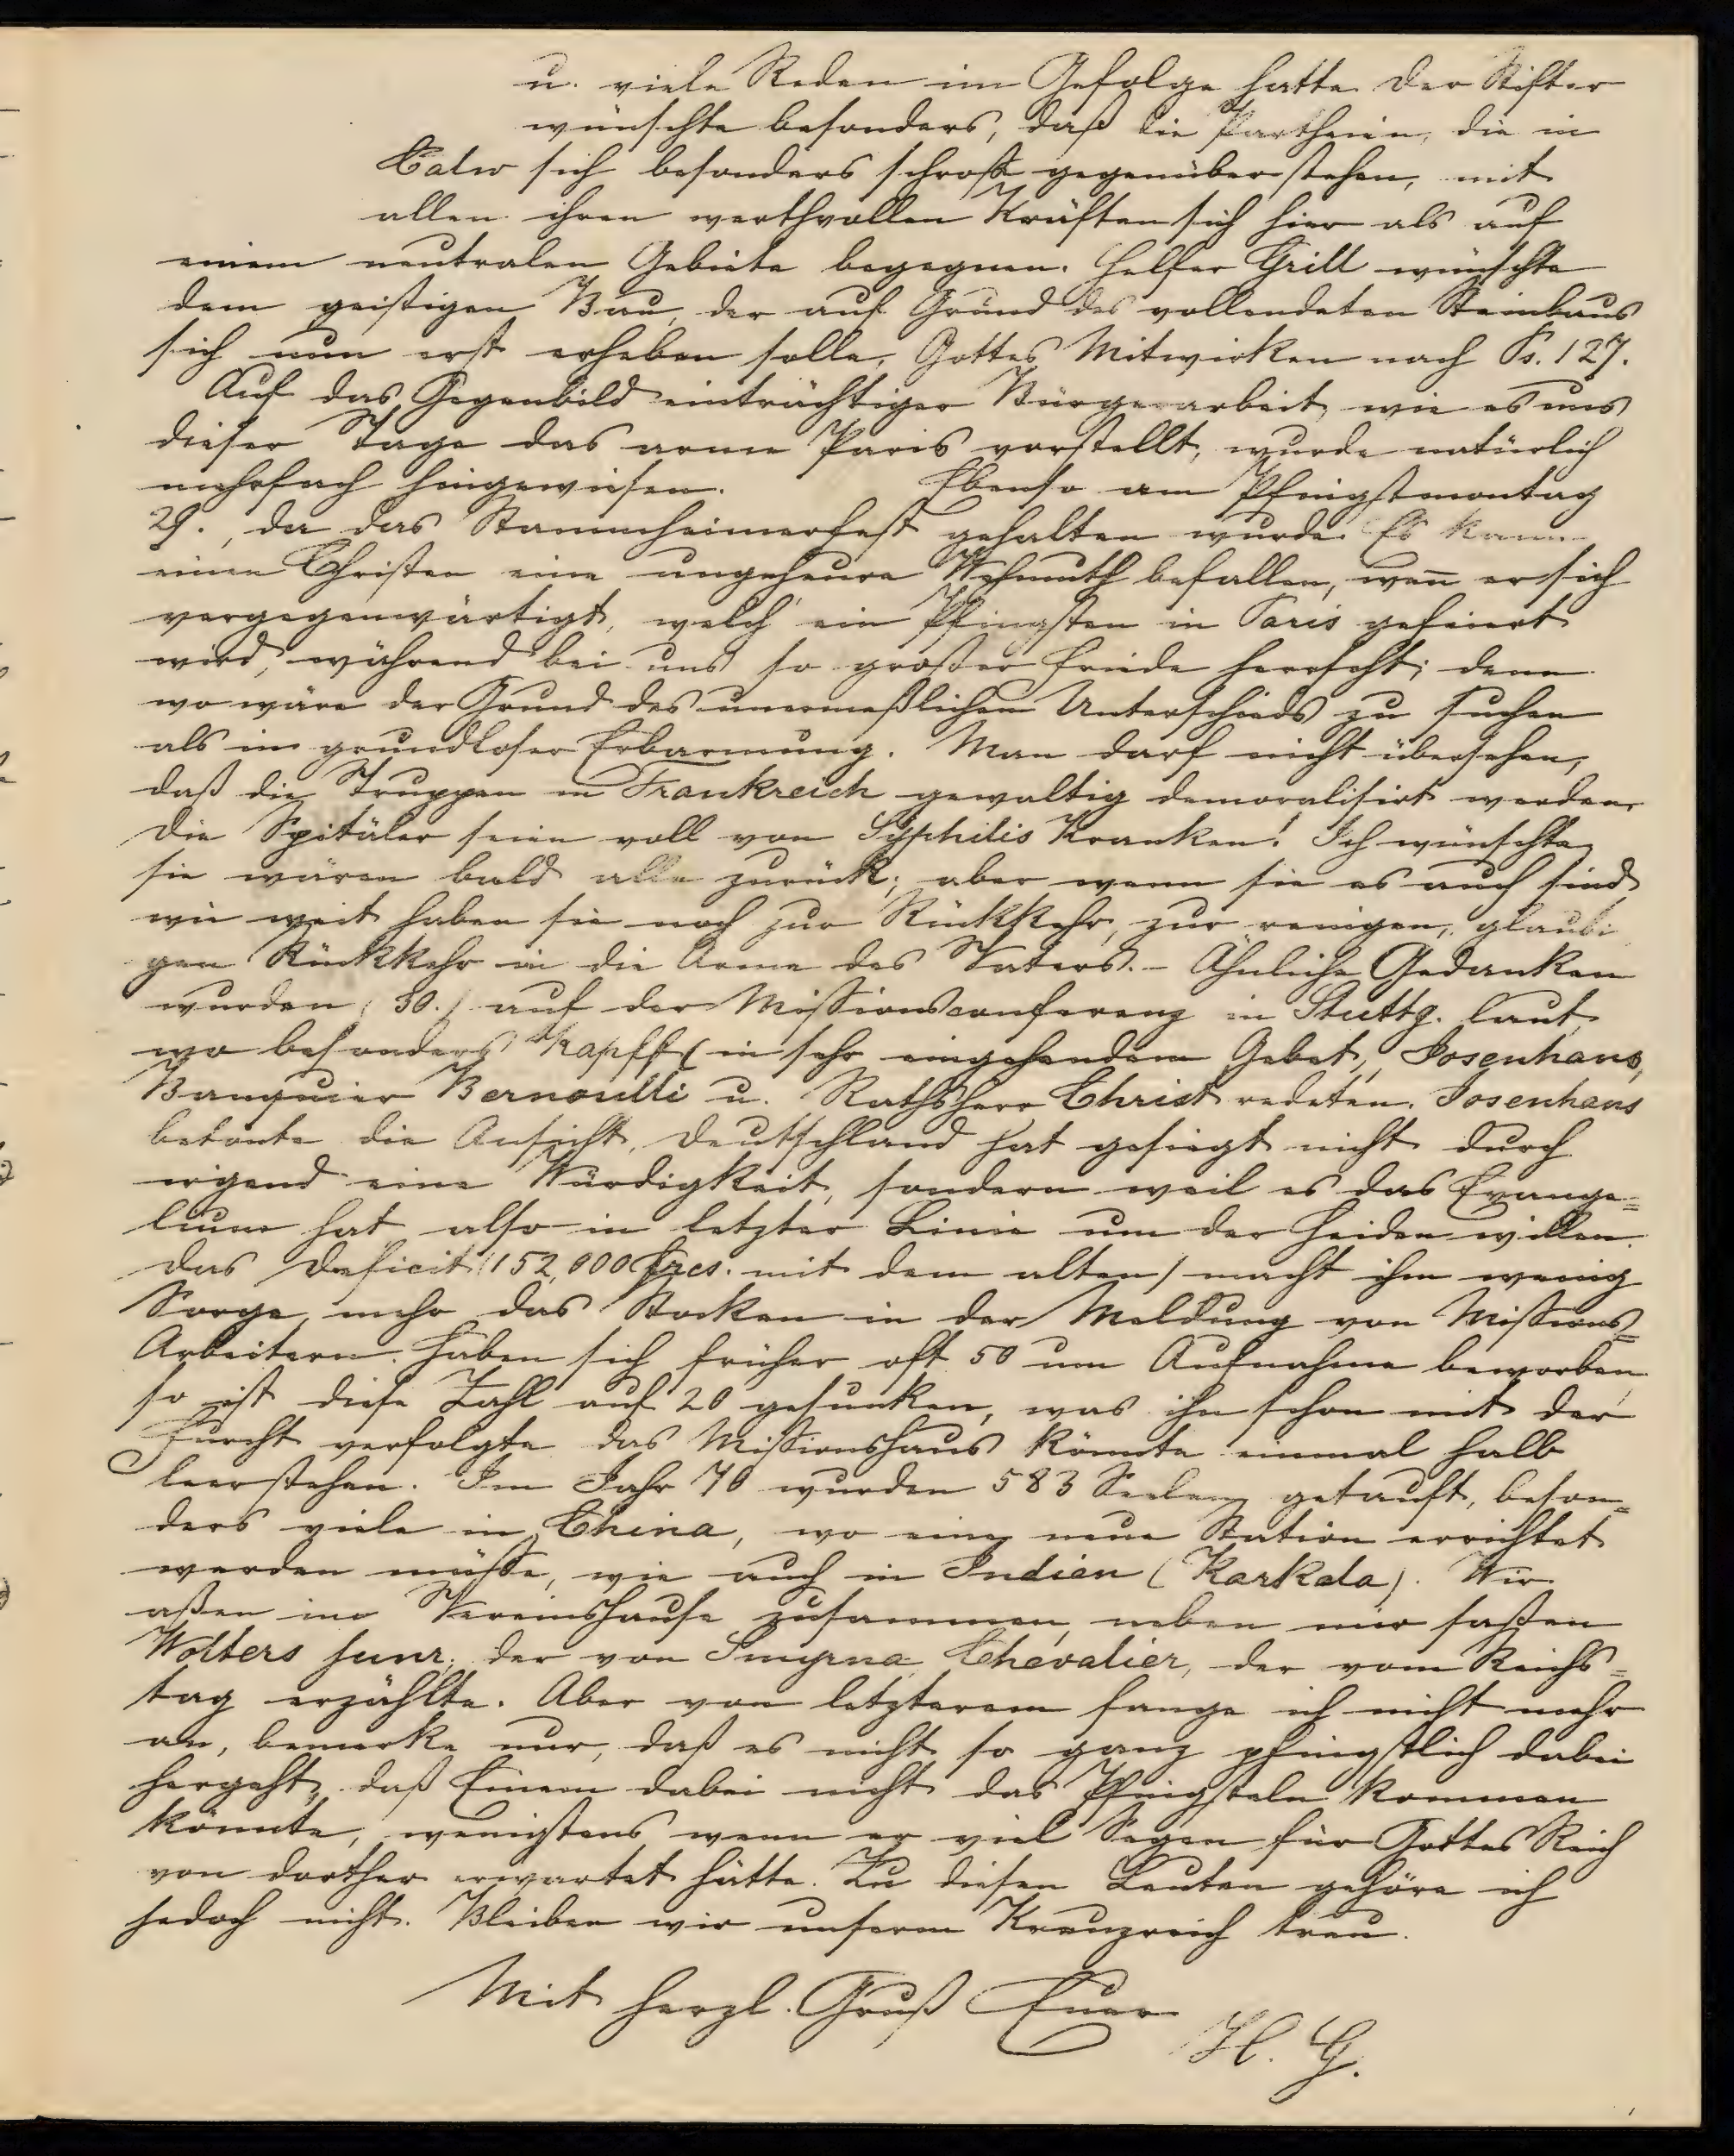 u. viele Reden im Gefolge hatte. Der Stifter
wünschte besonders, daß die Partheien, die in
Calw sich besonders schroff gegenüberstehen, mit
allen ihren werthvollen Kräften sich hier als auf
einem neutralen Gebiete begegnen. Helfer Grill wünschte
dem geistigen Bau, der auf Grund des vollendeten Steinbaus
sich nun erst erheben solle, Gottes Mitwirken nach Ps. 127.
Auf das Gegenbild einträchtiger Bürgerarbeit, wie es uns
dieser Tage das arme Paris vorstellt, wurde natürlich
mehrfach hingewiesen. Ebenso am Pfingstmontag
29., da das Stammheimerfest gehalten wurde. Es kann
einen Christen eine ungeheure Wehmuth befallen, wen̄ er sich
vergegenwärtigt, welch' ein Pfingsten in Paris gefeiert
wird, während bei uns so großer Friede herrscht; denn
wo wäre der Grund des unermeßlichen Unterschieds zu suchen
als in grundloser Erbarmung. Man darf nicht übersehen,
daß die Truppen in Frankreich gewaltig demoralisirt werden.
Die Spitäler seien voll von Syphilis Kranken! Ich wünschte
sie wären bald alle zurück; aber wenn sie es auch sind
wie weit haben sie noch zur Rückkehr, zur reuigen, glaubi
gen Rückkehr in die Arme des Vaters. - Ähnliche Gedanken
wurden (30.) auf der Missionsconferenz in Stuttg. laut,
wo besonders Kapff (in sehr eingehendem Gebet), Josenhans,
Banquier Bernoulli u. Rathsherr Christ redeten. Josenhans
betonte die Ansicht, Deutschland hat gesiegt nicht durch
irgend eine Würdigkeit, sondern weil es das Evange=
lium hat also in letzter Linie um der Heiden willen.
Das Deficit (152,000 Frcs. mit dem alten) macht ihm wenig
Sorge, mehr das Stocken in der Meldung von Missions=
Arbeitern. Haben sich früher oft 50 um Aufnahme beworben
so ist diese Zahl auf 20 gesunken, was ihn schon mit der
Furcht verfolgte das Missionshaus könnte einmal halb
leerstehen. Im Jahr 70 wurden 583 Seelen getauft, beson=
ders viele in China, wo eine neue Station errichtet
werden müsse, wie auch in Indien (Karkala). Wir
aßen im Vereinshause zusammen, neben mir saßen
Wolters junr. der von Smyrna, Chevalier, der vom Reichs=
tag erzählte. Aber von letzterem fange ich nicht mehr
an, bemerke nur, daß es nicht so ganz pfingstlich dabei
hergeht, daß Einem dabei nicht das Pfingsteln kommen
könnte, wenigstens wenn er viel Segen für Gottes Reich
von dorther erwartet hätte. Zu diesen Leuten gehöre ich
jedoch nicht. Bleiben wir unserem Kreuzreich treu.
Mit herzl. Gruß Euer
H. G.